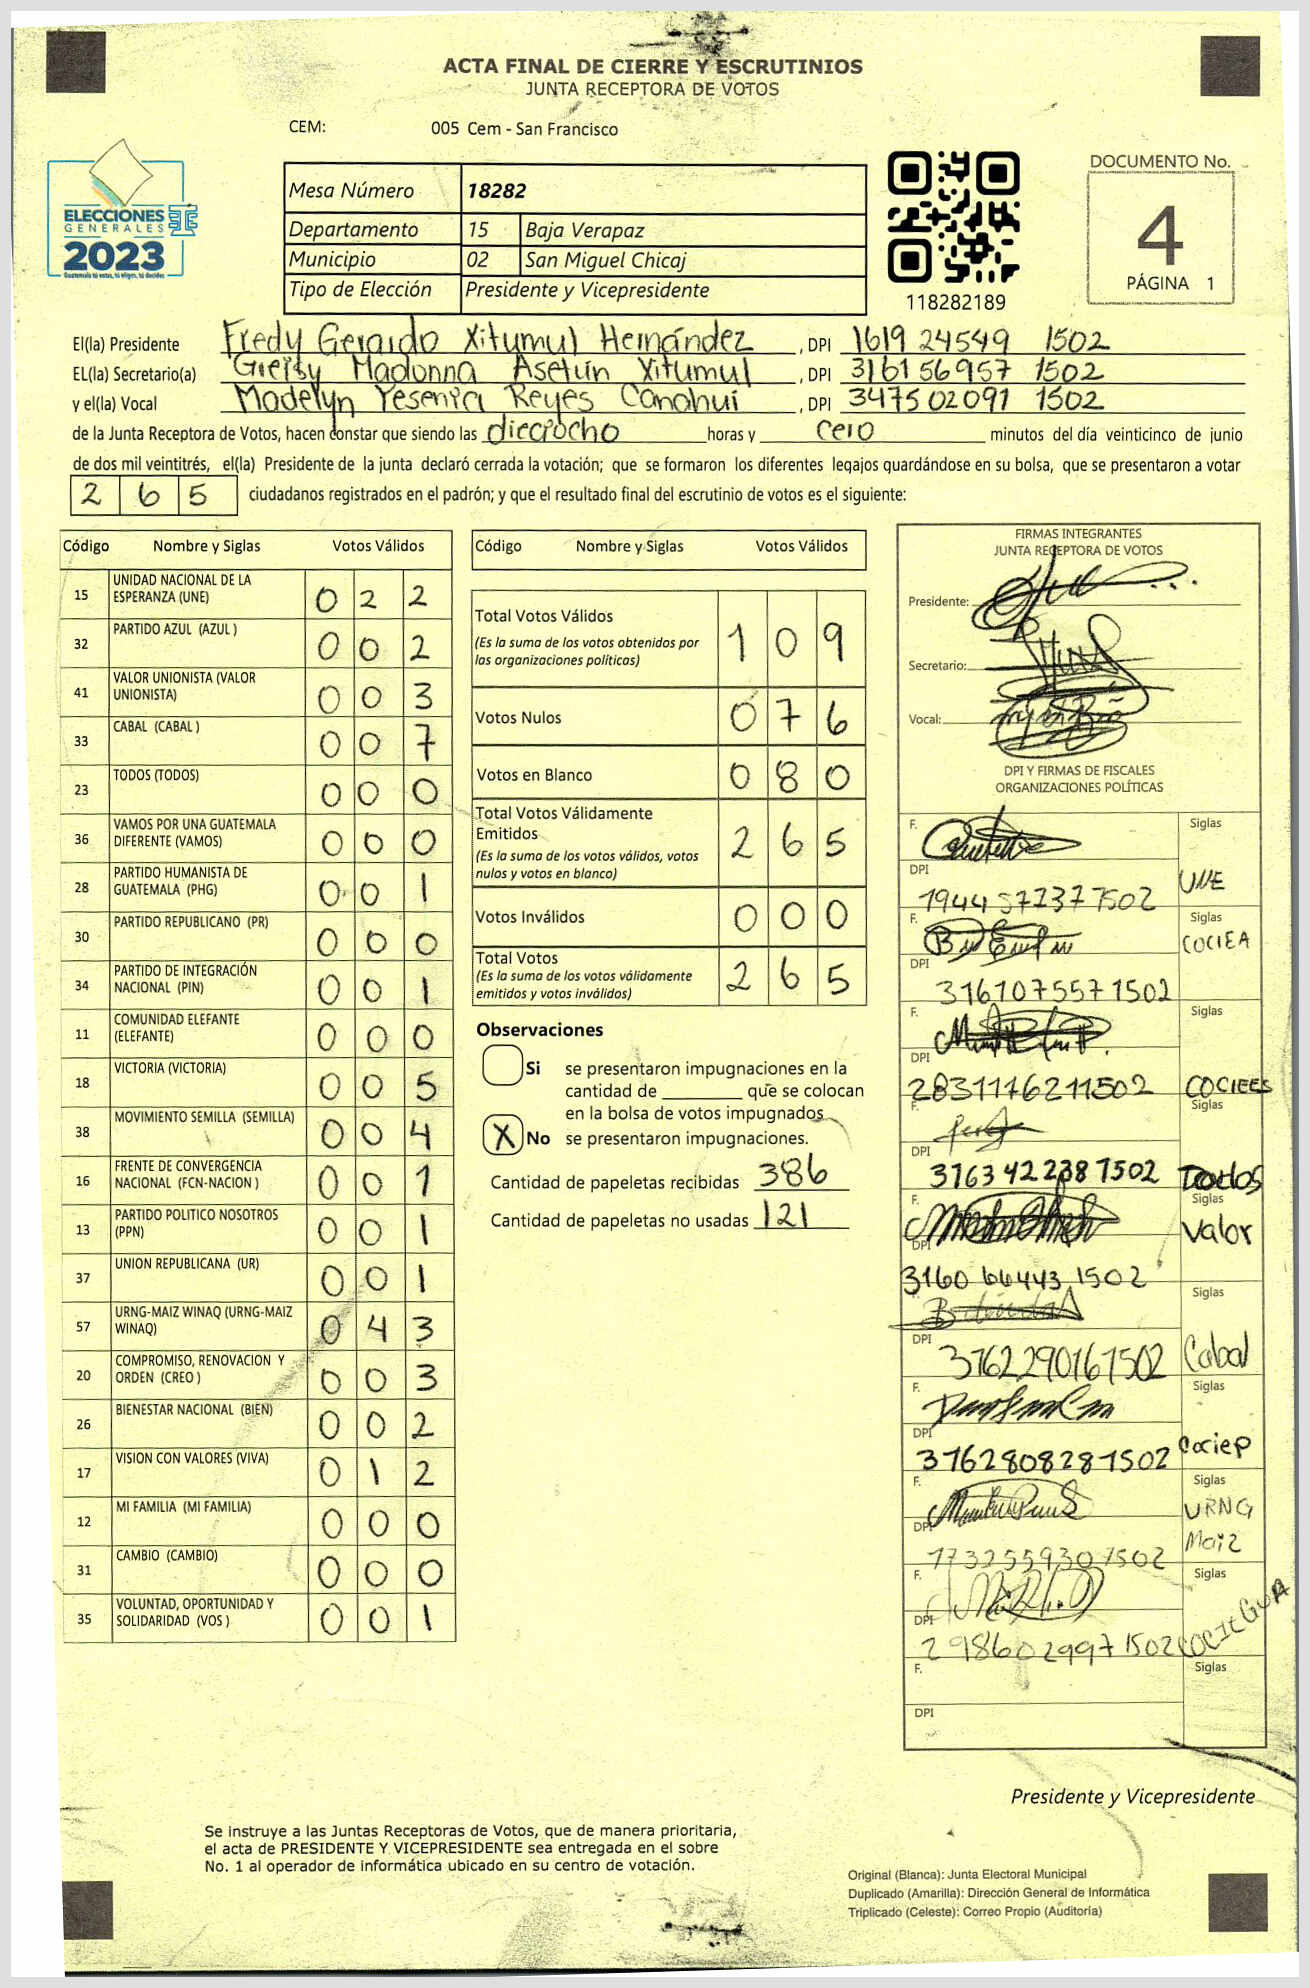 ACTA FINAL DE CIERRE Y ESCRUTINIOS
JUNTA RECEPTORA DE VOTOS
CEM: 005 Cem - San Francisco
ELECCIONES
GENERALES
2023
Mesa Número 18282
Departamento 15 Baja Verapaz
Municipio 02 San Miguel Chicaj
Tipo de Elección Presidente y Vicepresidente
118282189
DOCUMENTO No.
4
PÁGINA 1
El(la) Presidente Fredy Gerardo Xitumul Hernández, DPI 1619 24549 1502
EL(la) Secretario(a) Madonna Xitumul, DPI 3161 56957 1502
y el(la) Vocal Madelyn Yesenia Reyes Canahui, DPI 3475 02091 1502
de la Junta Receptora de Votos, hacen constar que siendo las dieciocho horas y cero minutos del día veinticinco de junio
de dos mil veintitrés, el(la) Presidente de la junta declaró cerrada la votación; que se formaron los diferentes legajos guardándose en su bolsa, que se presentaron a votar
2 6 5 ciudadanos registrados en el padrón; y que el resultado final del escrutinio de votos es el siguiente:
Código Nombre y Siglas Votos Válidos
15 UNIDAD NACIONAL DE LA ESPERANZA (UNE) 0 2 2
32 PARTIDO AZUL (AZUL ) 0 0 2
41 VALOR UNIONISTA (VALOR UNIONISTA) 0 0 3
33 CABAL (CABAL ) 0 0 7
23 TODOS (TODOS) 0 0 0
36 VAMOS POR UNA GUATEMALA DIFERENTE (VAMOS) 0 0 0
28 PARTIDO HUMANISTA DE GUATEMALA (PHG) 0 0 1
30 PARTIDO REPUBLICANO (PR) 0 0 0
34 PARTIDO DE INTEGRACIÓN NACIONAL (PIN) 0 0 1
11 COMUNIDAD ELEFANTE (ELEFANTE) 0 0 0
18 VICTORIA (VICTORIA) 0 0 5
38 MOVIMIENTO SEMILLA (SEMILLA) 0 0 4
16 FRENTE DE CONVERGENCIA NACIONAL (FCN-NACION ) 0 0 1
13 PARTIDO POLITICO NOSOTROS (PPN) 0 0 1
37 UNION REPUBLICANA (UR) 0 0 1
57 URNG-MAIZ WINAQ (URNG-MAIZ WINAQ) 0 4 3
20 COMPROMISO, RENOVACION Y ORDEN (CREO ) 0 0 3
26 BIENESTAR NACIONAL (BIEN) 0 0 2
17 VISION CON VALORES (VIVA) 0 1 2
12 MI FAMILIA (MI FAMILIA) 0 0 0
31 CAMBIO (CAMBIO) 0 0 0
35 VOLUNTAD, OPORTUNIDAD Y SOLIDARIDAD (VOS ) 0 0 1
Código Nombre y Siglas Votos Válidos
Total Votos Válidos 1 0 9
(Es la suma de los votos obtenidos por
las organizaciones políticas)
Votos Nulos 0 7 6
Votos en Blanco 0 8 0
Total Votos Válidamente
Emitidos 2 6 5
(Es la suma de los votos válidos, votos
nulos y votos en blanco)
Votos Inválidos 0 0 0
Total Votos 2 6 5
(Es la suma de los votos válidamente
emitidos y votos inválidos)
Observaciones
Si se presentaron impugnaciones en la
cantidad de ________ que se colocan
en la bolsa de votos impugnados
X No se presentaron impugnaciones.
Cantidad de papeletas recibidas 386
Cantidad de papeletas no usadas 121
FIRMAS INTEGRANTES
JUNTA RECEPTORA DE VOTOS
Presidente:
Secretario:
Vocal:
DPI Y FIRMAS DE FISCALES
ORGANIZACIONES POLÍTICAS
F. Siglas
DPI UNE
1944 57737 1502
F. Siglas
COCIEA
DPI
3161075571502
F. Siglas
DPI
2831176211502 COCIEES
F. Siglas
DPI
3163422381502 Todos
F. Siglas
DPI Valor
3160 66443 1502
F. Siglas
DPI
3162290161502 Cabal
F. Siglas
DPI
3162808281502 Cociep
F. Siglas
DPI URNG
Maiz
1732559301502
F. Siglas
DPI
2986029971502 COCIEGUA
F. Siglas
DPI
Presidente y Vicepresidente
Se instruye a las Juntas Receptoras de Votos, que de manera prioritaria,
el acta de PRESIDENTE Y VICEPRESIDENTE sea entregada en el sobre
No. 1 al operador de informática ubicado en su centro de votación.
Original (Blanca): Junta Electoral Municipal
Duplicado (Amarilla): Dirección General de Informática
Triplicado (Celeste): Correo Propio (Auditoría)